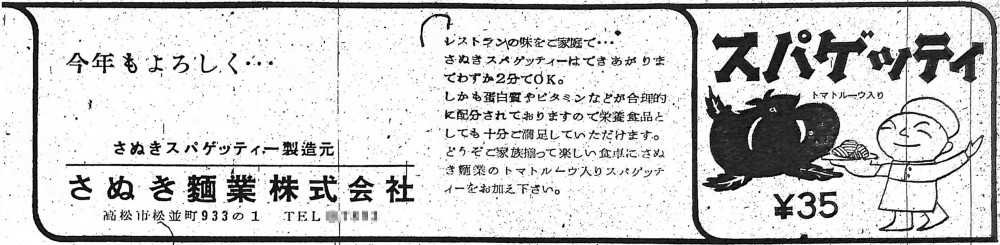 今年もよろしく…
さぬきスパゲッティー製造元
さぬき麵業株式会社
高松市松並町933の1 TEL
レストランの味をご家庭で…
さぬきスパゲッティーはできあがりま
でわずか2分でOK。
しかも蛋白質やビタミンなどが合理的
に配分されておりますので栄養食品と
しても十分ご満足していただけます。
どうぞご家族揃って楽しい食卓にさぬ
き麵業のトマトルーウ入りスパゲッテ
ィーをお加え下さい。
スパゲッティ
トマトルーウ入り
¥35